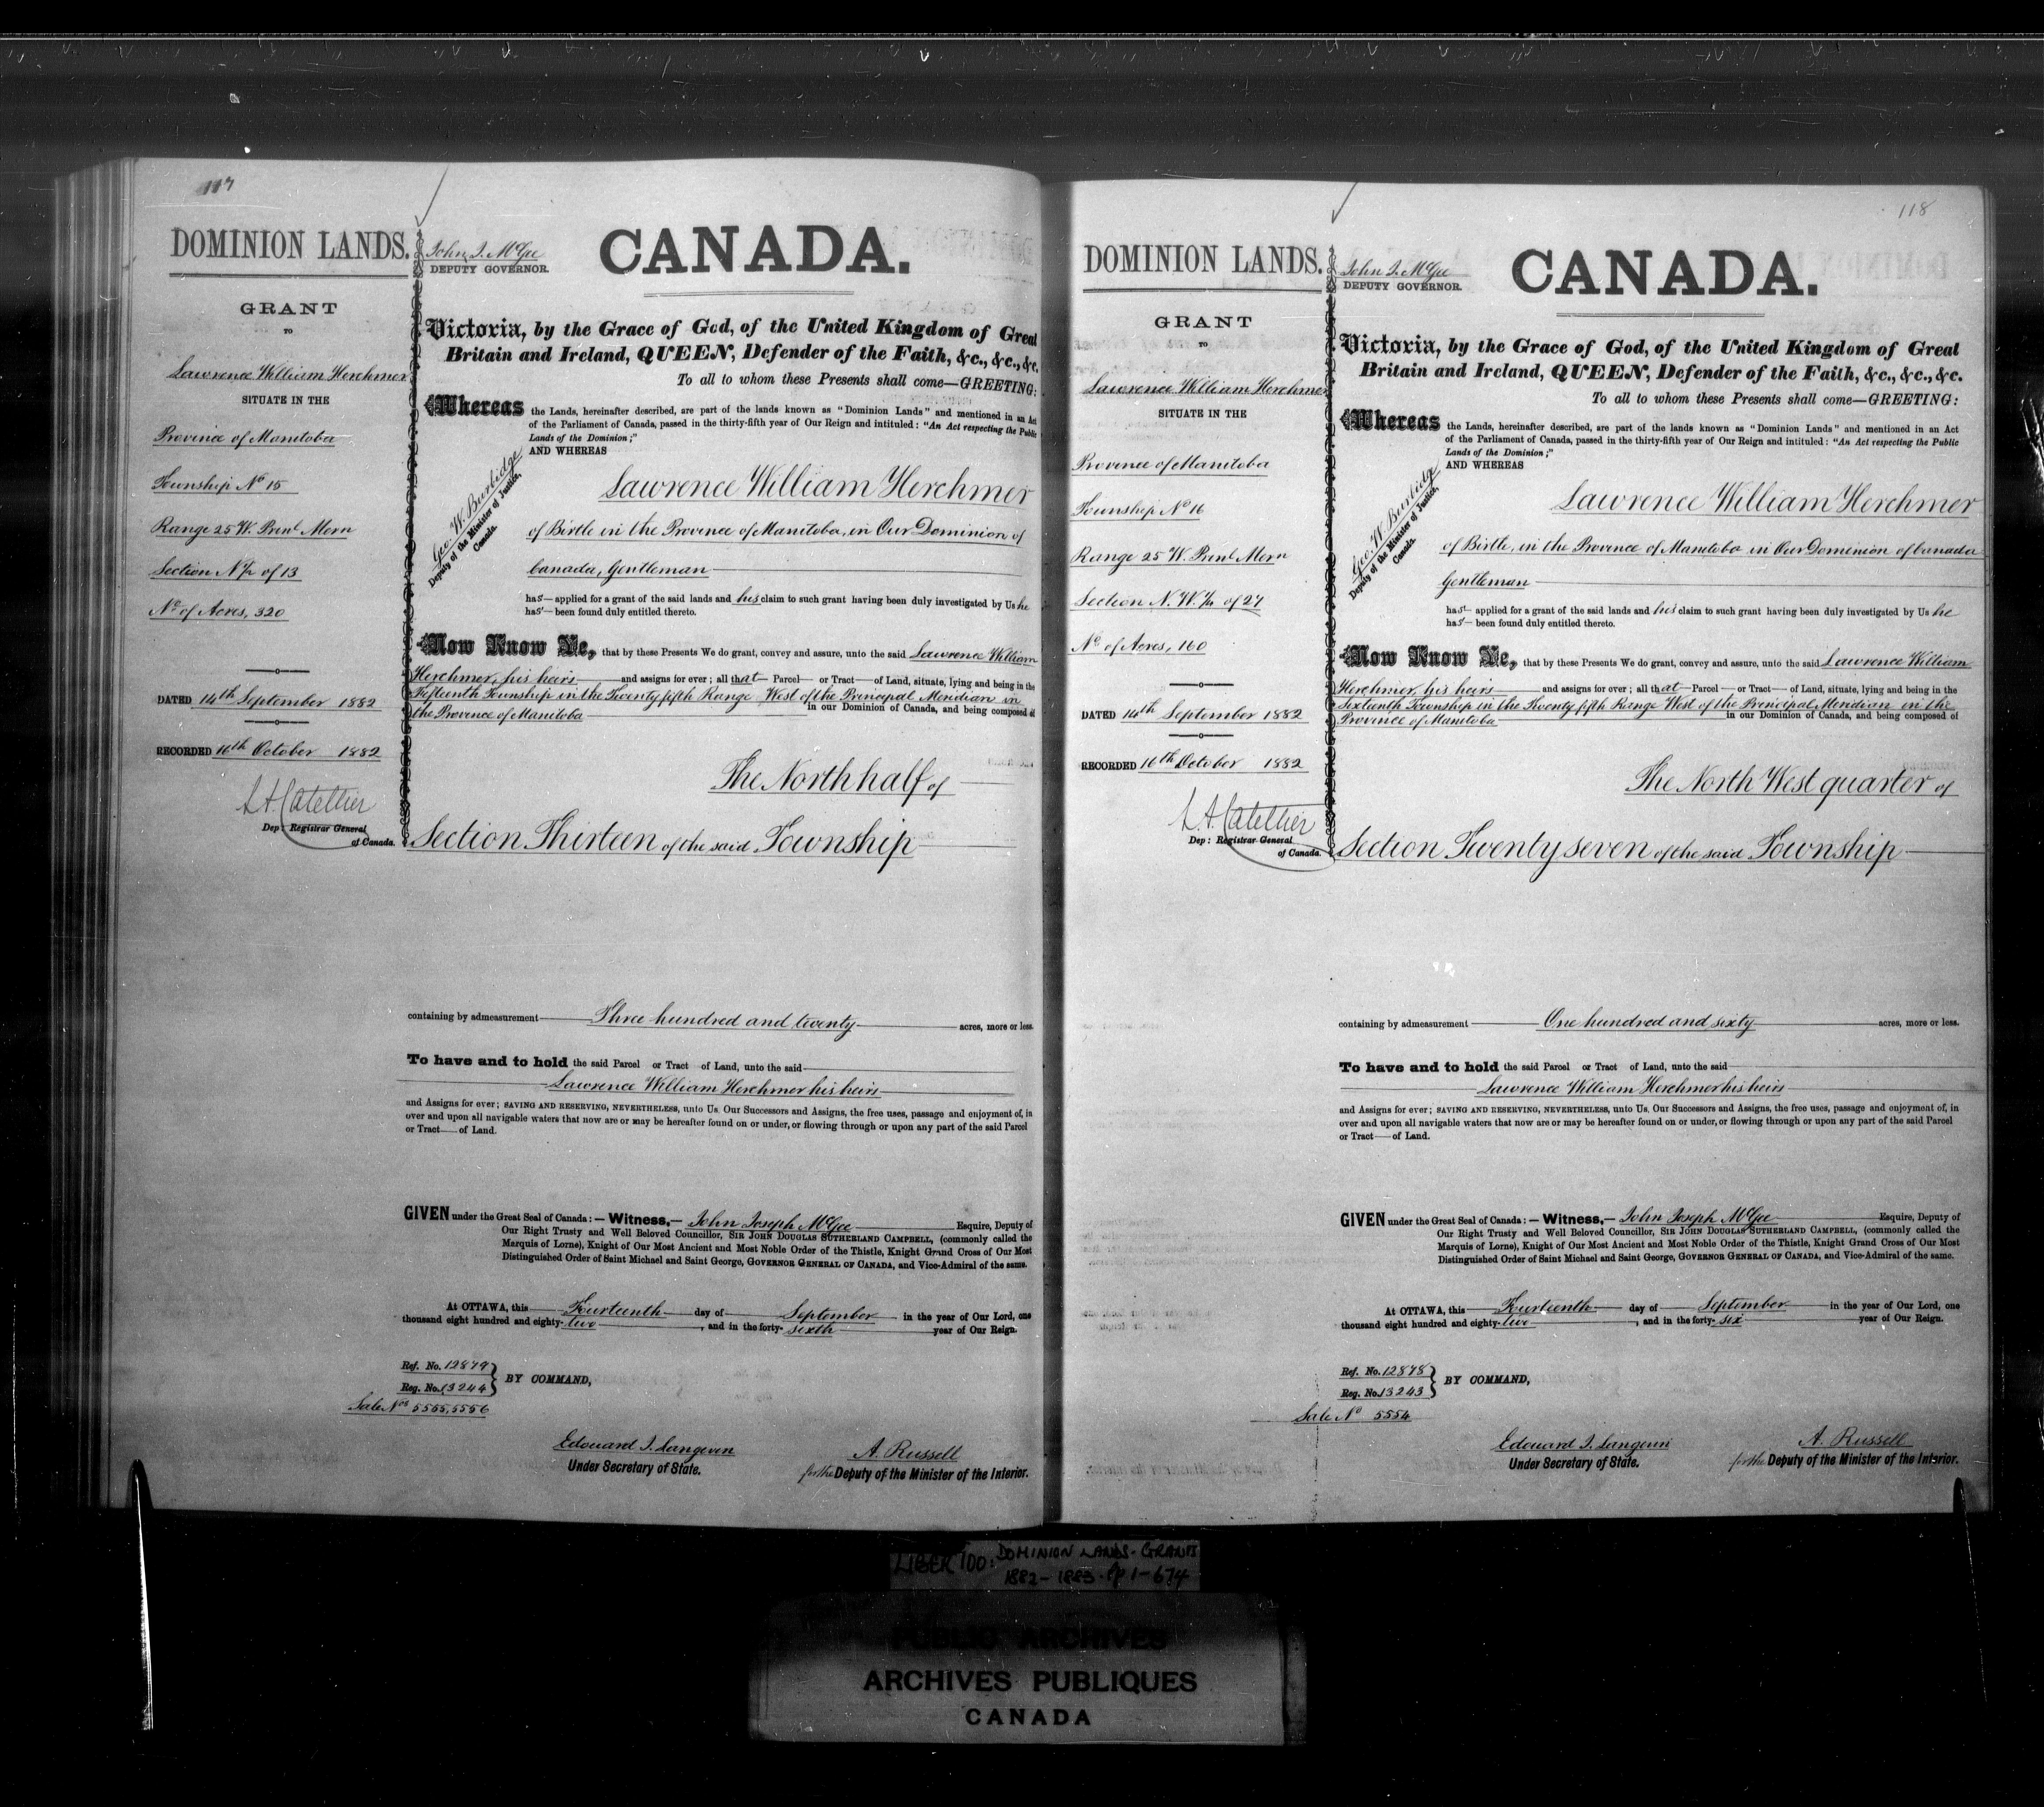 117
DOMINION LANDS.
GRANT
TO
Lawrence William Herchmer
SITUATE IN THE
Province of Manitoba
Township No 15
Range 25 W. Prinl Mern
Section N½ of 13
No of Acres, 320
DATED 14th September 1882
RECORDED 16th October 1882
L A Catellier
Dep: Registrar General
of Canada.
John J. McGee
DEPUTY GOVERNOR.
CANADA.
Victoria, by the Grace of God, of the United Kingdom of Great
Britain and Ireland, QUEEN, Defender of the Faith, &c., &c., &c.
To all to whom these Presents shall come—GREETING:
Whereas the Lands, hereinafter described, are part of the lands known as "Dominion Lands" and mentioned in an Act
of the Parliament of Canada, passed in the thirty-fifth year of Our Reign and intituled: "An Act respecting the Public
Lands of the Dominion;"
AND WHEREAS
Geo. W. Burbidge
Deputy of the Minister of Justice,
Canada.
Lawrence William Herchmer
of Birtle in the Province of Manitoba, in Our Dominion of
Canada, Gentleman
has applied for a grant of the said lands and his claim to such grant having been duly investigated by Us he
has been found duly entitled thereto.
Now Know Ye, that by these Presents We do grant, convey and assure, unto the said Lawrence William
Herchmer, his heirs and assigns for ever; all that Parcel or Tract of Land, situate, lying and being in the
Fifteenth Township in the Twenty fifth Range West of the Principal Meridian in
the Province of Manitoba in our Dominion of Canada, and being composed of
The North half of
Section Thirteen of the said Township
containing by admeasurement Three hundred and twenty acres, more or less.
To have and to hold the said Parcel or Tract of Land, unto the said
Lawrence William Herchmer his heirs
and Assigns for ever; SAVING AND RESERVING, NEVERTHELESS, unto Us, Our Successors and Assigns, the free uses, passage and enjoyment of, in
over and upon all navigable waters that now are or may be hereafter found on or under, or flowing through or upon any part of the said Parcel
or Tract of Land.
GIVEN under the Great Seal of Canada:—Witness,—John Joseph McGee Esquire, Deputy of
Our Right Trusty and Well Beloved Councillor, SIR JOHN DOUGLAS SUTHERLAND CAMPBELL, (commonly called the
Marquis of Lorne), Knight of Our Most Ancient and Most Noble Order of the Thistle, Knight Grand Cross of Our Most
Distinguished Order of Saint Michael and Saint George, GOVERNOR GENERAL OF CANADA, and Vice-Admiral of the same.
At OTTAWA, this Fourteenth day of September in the year of Our Lord, one
thousand eight hundred and eighty-two, and in the forty-sixth year of Our Reign.
Ref. No. 12879
Reg. No. 13244
BY COMMAND,
Sale Nos 5555, 5556
Edouard J. Langevin
Under Secretary of State.
A. Russell
for the Deputy of the Minister of the Interior.
118
DOMINION LANDS.
GRANT
TO
Lawrence William Herchmer
SITUATE IN THE
Province of Manitoba
Township No 16
Range 25 W. Prinl Mern
Section N. W. ¼ of 27
No of Acres, 160
DATED 14th September 1882
RECORDED 16th October 1882
L. A. Catellier
Dep: Registrar General
of Canada.
John J. McGee
DEPUTY GOVERNOR.
CANADA.
Victoria, by the Grace of God, of the United Kingdom of Great
Britain and Ireland, QUEEN, Defender of the Faith, &c., &c., &c.
To all to whom these Presents shall come—GREETING:
Whereas the Lands, hereinafter described, are part of the lands known as "Dominion Lands" and mentioned in an Act
of the Parliament of Canada, passed in the thirty-fifth year of Our Reign and intituled: "An Act respecting the Public
Lands of the Dominion;"
AND WHEREAS
Geo. W. Burbidge
Deputy of the Minister of Justice,
Canada.
Lawrence William Herchmer
of Birtle, in the Province of Manitoba in Our Dominion of Canada
Gentleman
has applied for a grant of the said lands and his claim to such grant having been duly investigated by Us he
has been found duly entitled thereto.
Now Know Ye, that by these Presents We do grant, convey and assure, unto the said Lawrence William
Herchmer, his heirs and assigns for ever; all that Parcel or Tract of Land, situate, lying and being in the
Sixteenth Township in the Twenty fifth Range West of the Principal Meridian in the
Province of Manitoba in our Dominion of Canada, and being composed of
The North West quarter of
Section Twenty seven of the said Township
containing by admeasurement One hundred and sixty acres, more or less.
To have and to hold the said Parcel or Tract of Land, unto the said
Lawrence William Herchmer his heirs
and Assigns for ever; SAVING AND RESERVING, NEVERTHELESS, unto Us, Our Successors and Assigns, the free uses, passage and enjoyment of, in
over and upon all navigable waters that now are or may be hereafter found on or under, or flowing through or upon any part of the said Parcel
or Tract of Land.
GIVEN under the Great Seal of Canada:—Witness,—John Joseph McGee Esquire, Deputy of
Our Right Trusty and Well Beloved Councillor, SIR JOHN DOUGLAS SUTHERLAND CAMPBELL, (commonly called the
Marquis of Lorne), Knight of Our Most Ancient and Most Noble Order of the Thistle, Knight Grand Cross of Our Most
Distinguished Order of Saint Michael and Saint George, GOVERNOR GENERAL OF CANADA, and Vice-Admiral of the same.
At OTTAWA, this Fourteenth day of September in the year of Our Lord, one
thousand eight hundred and eighty-two, and in the forty-six year of Our Reign.
Ref. No. 12878
Reg. No. 13243
BY COMMAND,
Sale No 5554
Edouard J. Langevin
Under Secretary of State.
A. Russell
for the Deputy of the Minister of the Interior.
LIBER 100: DOMINION LANDS-GRANTS
1882-1883. pp 1-674
PUBLIC ARCHIVES
ARCHIVES PUBLIQUES
CANADA